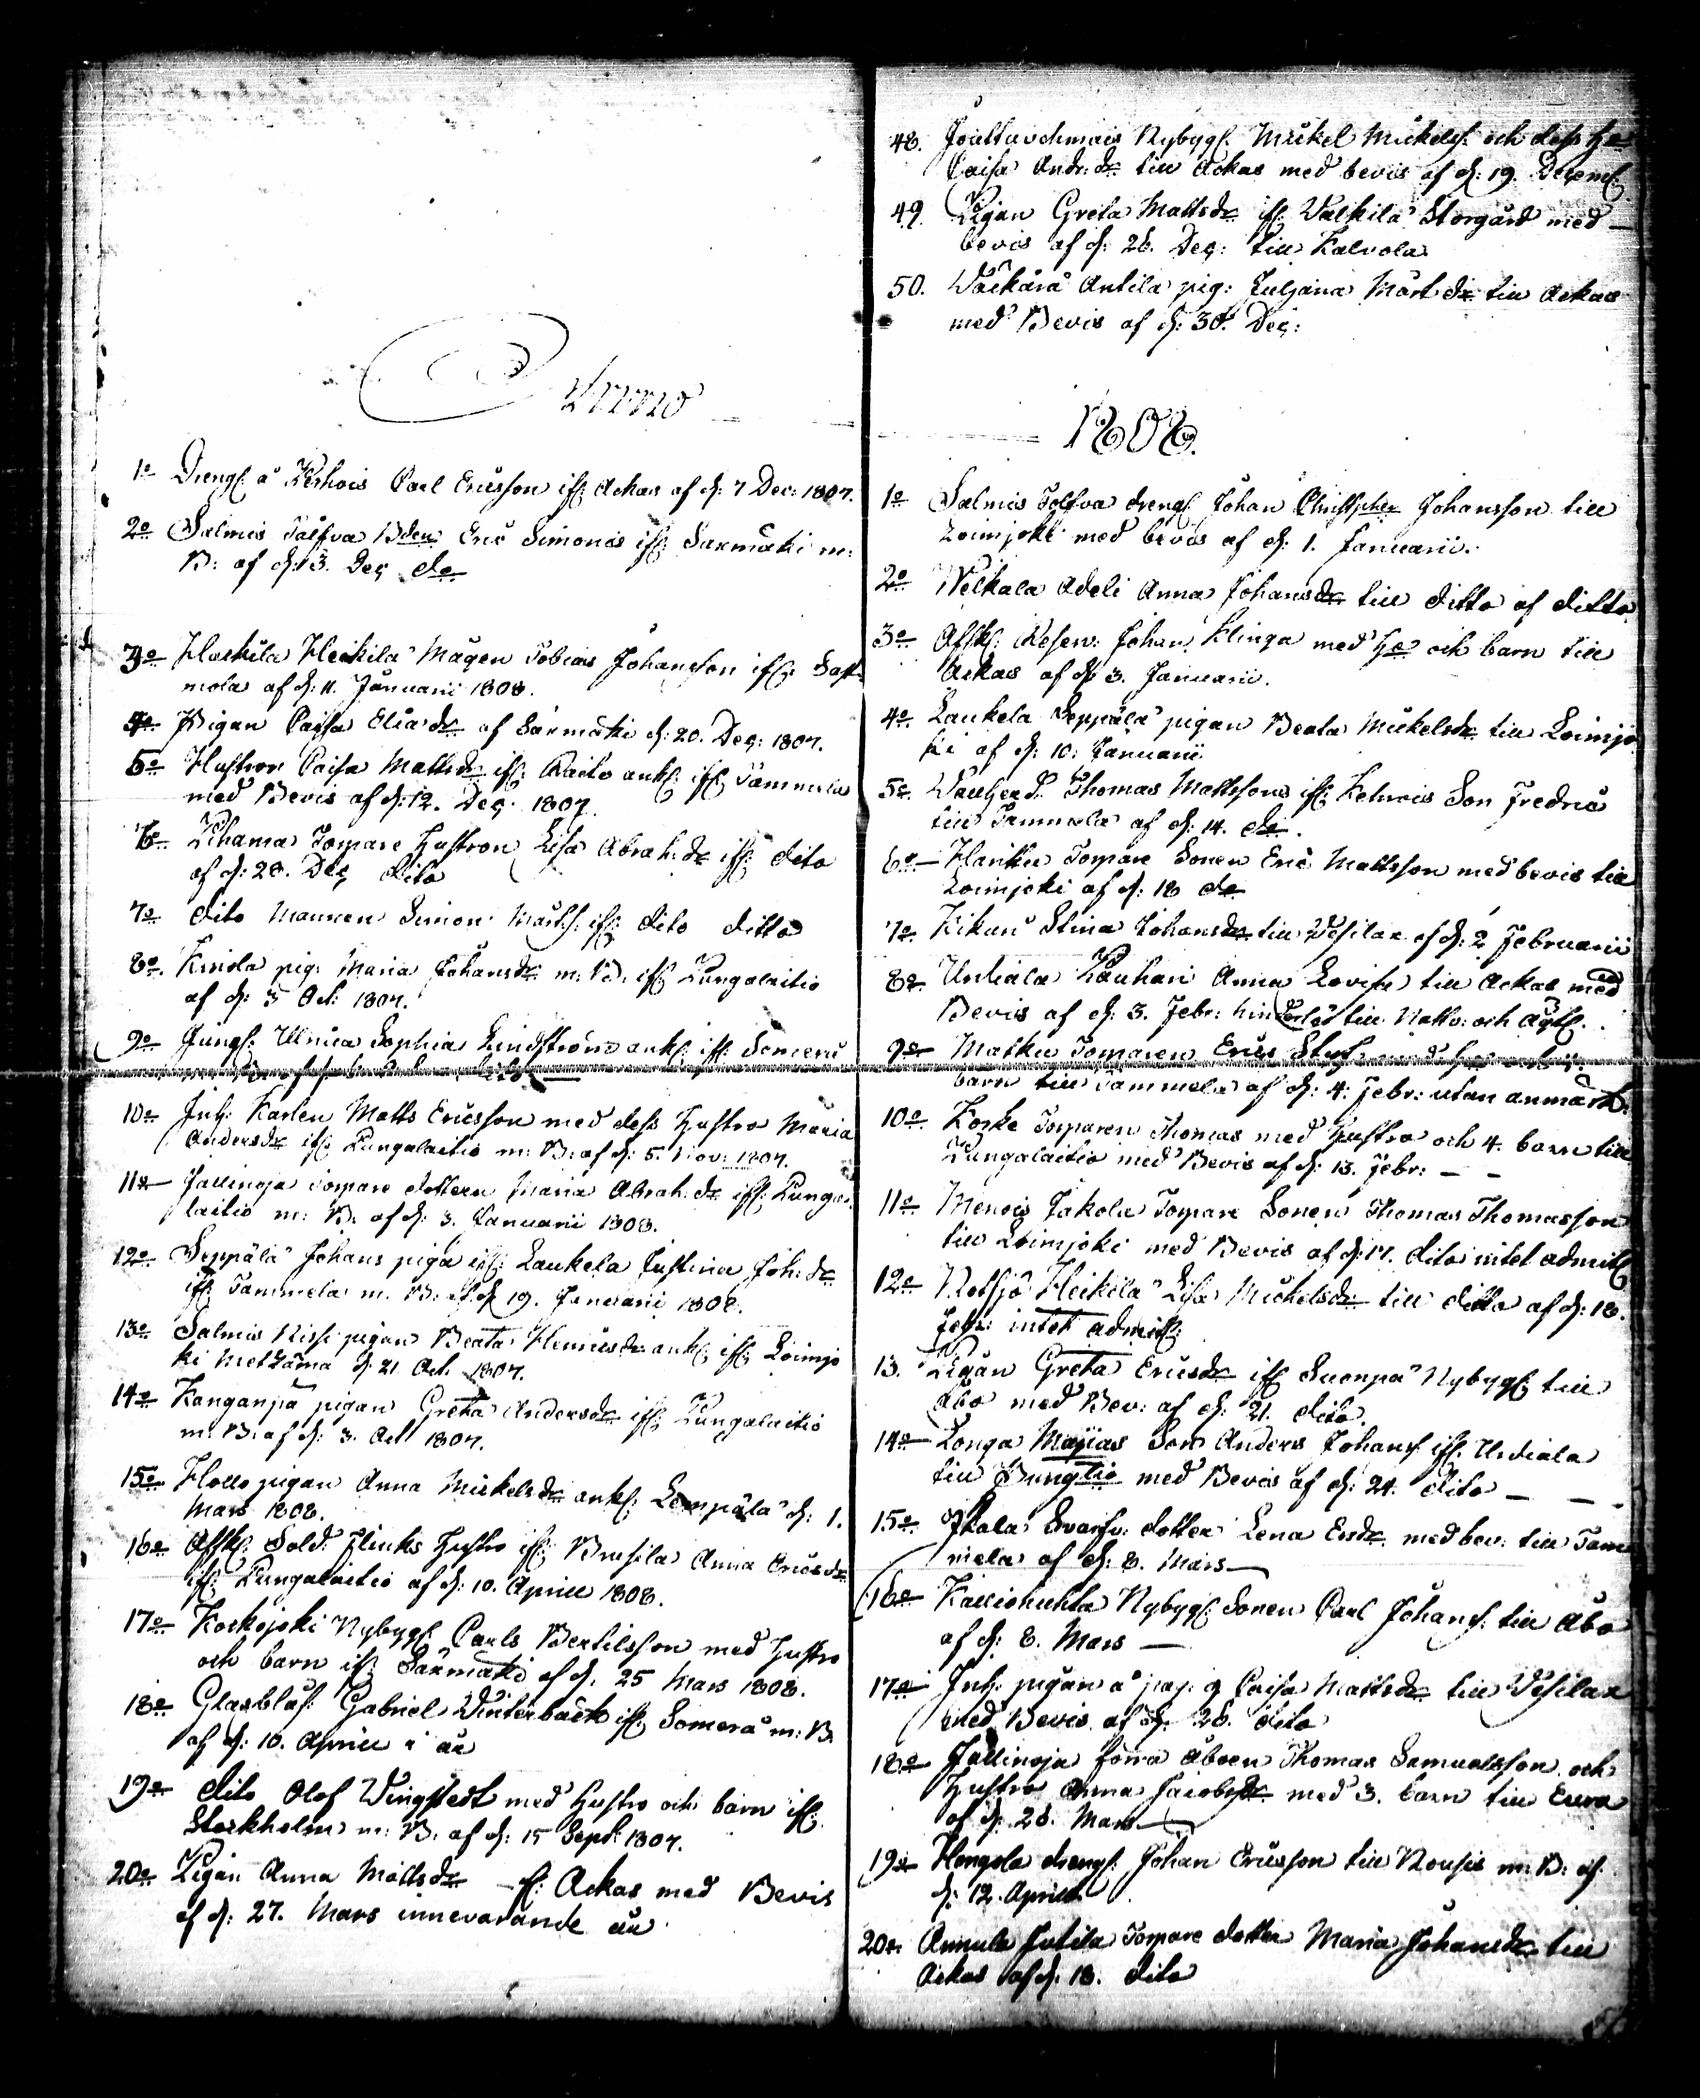 Anno
1o Drengs. å Kerhois Carl Ericsson ifs: Ackas af d: 7 Dec: 1807.
2o Salmis Tålfva Bden Eric Simons ifs: Sarmäki m:
B: af d: 13. Dec do
3o Huskila Heikila Mågen Tobias Johansson ifs: Sast-
mola af d: 11. Januarii 1808.
4o Pigan Caisa Elia dr af Sarmäki d: 20. Dec: 1807.
5o Hustron Caisa Mattsdr ifs: Raito ank: ifs: Tammela
med Bevis af d: 12. Dec. 1807.
6o Torpare Hustron Lisa Abrah: dr ifs: dito
af d: 28. Dec dito
7o dito Mannen Simon Matts: ifs: dito ditto
8o. pig: Maria Johansdr m: B: ifs: Pungalaitio
af d: 3 Oct: 1807.
9o Jungf: Ulrica Sophia Lindström ank: ifs: Somero
10o Inh: Karlen Matts Ericsson med dess Hustro Maria
Andersdr ifs: Pungalaitio m: B: af d: 5. Nov: 1807.
11o Jallinoja Torpare dottern Maria Abrah: dr ifs: Punga-
laitio m: B: af d: 3. Januarii 1808.
12o Seppälä Johans piga ifs: Laukela Justina Joh: dr
ifs: Tammela m. B: af d 19. Januarii 1808.
13o Salmis Nissi pigan Beata Henricsdr ank: ifs: Loimjo
ki Metzäma d. 21 Oct. 1807.
14o Kanganpä pigan Greta Andersdr ifs: Pungalaitio
m: B: af d: 3. Oct 1807.
15o Hollo pigan Anna Mickelsdr ank: Lempälä d: 1.
Mars 1808.
16o Afsk: Sold: Flinks Hustro ifs: Brusila Anna Ericsdr
ifs: Pungalaitio af d: 10. Aprill 1808.
17o Koskojoki Nybygg: Carls Bertilsson med Hustro
och barn ifs: Sarmäki af d. 25 Mars 1808.
18o Glasblås: Gabriel Winterbäck ifs: Somero m: B.
af d: 10. Aprill i år
19o dito Olof Wingstedt med Hustro och barn ifs:
Stockholm m: B: af d: 15 Sept: 1807.
20o Pigan Anna Mattsdr ifs: Ackas med Bevis
af d: 27. Mars innevarande år
48. Nybygg: Mickel Mickels: och dess H
Caisa Andr: dr till Ackas med bevis af d: 19. Decemb:
49. Pigan Greta Mattsdr ifs: Walkila Storgård med
bevis af d: 26. Dec: till Kalvola
50. Wäkärä Antila pig: Juljana Mårt dr till Ackas
med Bevis af d: 30. Dec:
1808.
1o Salmis Tolfva drengs: Johan Christopher Johansson till
Loimjoki med bevis af d: 1. Januarii.
2o Welkala Adeli Anna Johansdr till ditto af ditto
3o Afsk: Reserv: Johan Klinga med H och barn till
Ackas af d: 3. Januarii.
4o Laukela Seppälä pigan Beata Mickelsdr till Loimjo
ki af d: 10: Januarii
5o Thomas Mattssons ifs: Kehrois Son Fredric
till Tammela af d: 14. do.
6o Hanku Torpare Sonen Eric Mattsson med bevis till
Loimjoki af d: 18 do
7o Kikuri Stina Johansdr till Wesilax af d: 2 Februarii
8o Urdiala Kauhari Anna Lovisa till Ackas med
Bevis af d: 3. Febr: hindersl: till Nattv: och Äkt:
9o Matku Torparen Erics
barn till Tammela af d: 4. Febr: utan anmärk:
10o Koske Torparen Thomas med Hustro och 4. barn till
Pungalaitio med Bevis af d: 13. Febr:
11o Menois Jakola Torpare Sonen Thomas Thomasson
till Loimjoki med Bevis af d: 17. dito intet admitt
12o Notsjö Heikila Lisa Mickelsdr till ditto af d: 18.
Febr: intet admitt:
13. Pigan Greta Ericsdr ifs: Suonpä Nybygg: till
Åbo med Bev: af d: 21. dito.
14o Longa Majias Son Anders Johans: ifs: Urdiala
till Pungtio med Bevis af d: 24. dito
15o Ikala Svarfv: dotter Lena Ersdr med bev: till Tam
mela af d: 8. Mars
16o Kalliohuhta Nybygg: Sonen Carl Johans: till Åbo
af d: 8. Mars
17o Inh: pigan å Caisa Mattsdr till Wesilax
med Bevis af d. 28. dito
18o Jallinoja förra åboen Thomas Samuelsson och
Hustro Anna Jacobsdr med 3. barn till Eura
af d. 28. Mars
19o Hongola drengs: Johan Ericsson till Nousis m: B: af
d: 12. Aprill
20o. Annula Jutila Torpare dotter Maria Johansdr till
Ackas af d: 18. dito